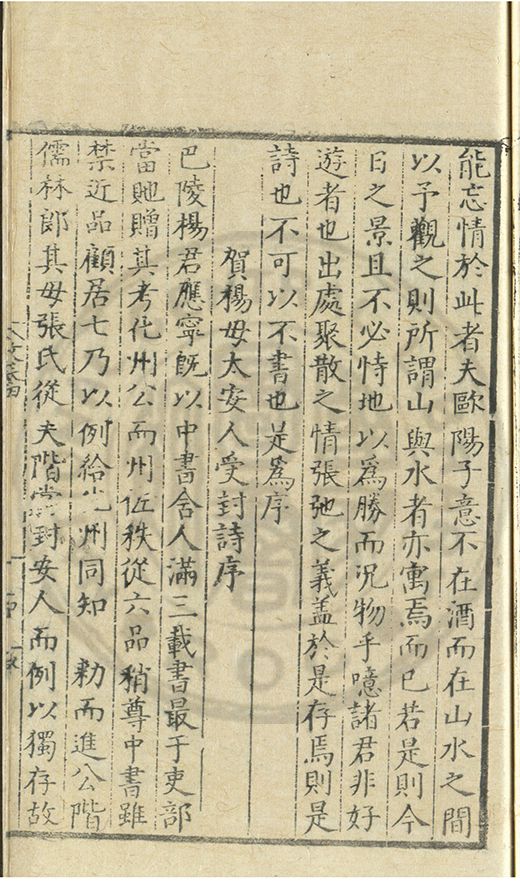 能忘情於此者夫歐陽子意不在酒而在山水之間
以予觀之則所謂山與水者亦寓焉而已若是則今
日之景且不必恃地以為勝而况物乎噫諸君非好
遊者也出處聚散之情張弛之義盖於是存焉則是
詩也不可以不書也是為序
賀楊母太安人受封詩序
巴陵楊君應寧既以中書舍人滿三載書最于吏部
當貤贈其考化州公而州佐秩從六品稍尊中書雖
禁近品顧居七乃以例給化州同知 勑而進公階
儒林郎其母張氏從夫階當封安人而例以獨存故